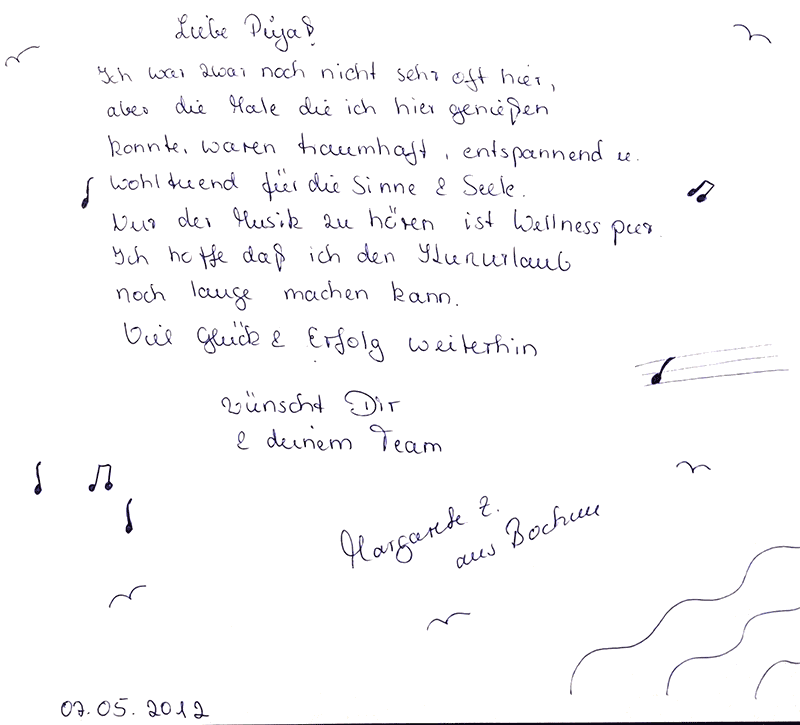 Liebe Puja!
Ich war zwar noch nicht sehr oft hier,
aber die Male die ich hier genießen
konnte, waren traumhaft, entspannend u.
wohltuend für die Sinne & Seele.
Nur der Musik zu hören ist Wellness pur.
Ich hoffe daß ich den Kurzurlaub
noch lange machen kann.
Viel Glück & Erfolg weiterhin
wünscht Dir
& deinem Team
Margarete Z.
aus Bochum
07.05.2012